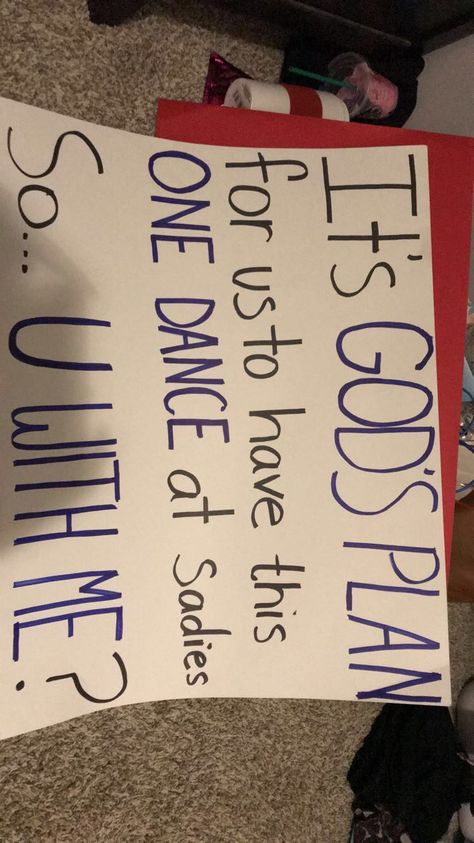 It's GOD'S PLAN
for us to have this
ONE DANCE at Sadies
So... U WITH ME?